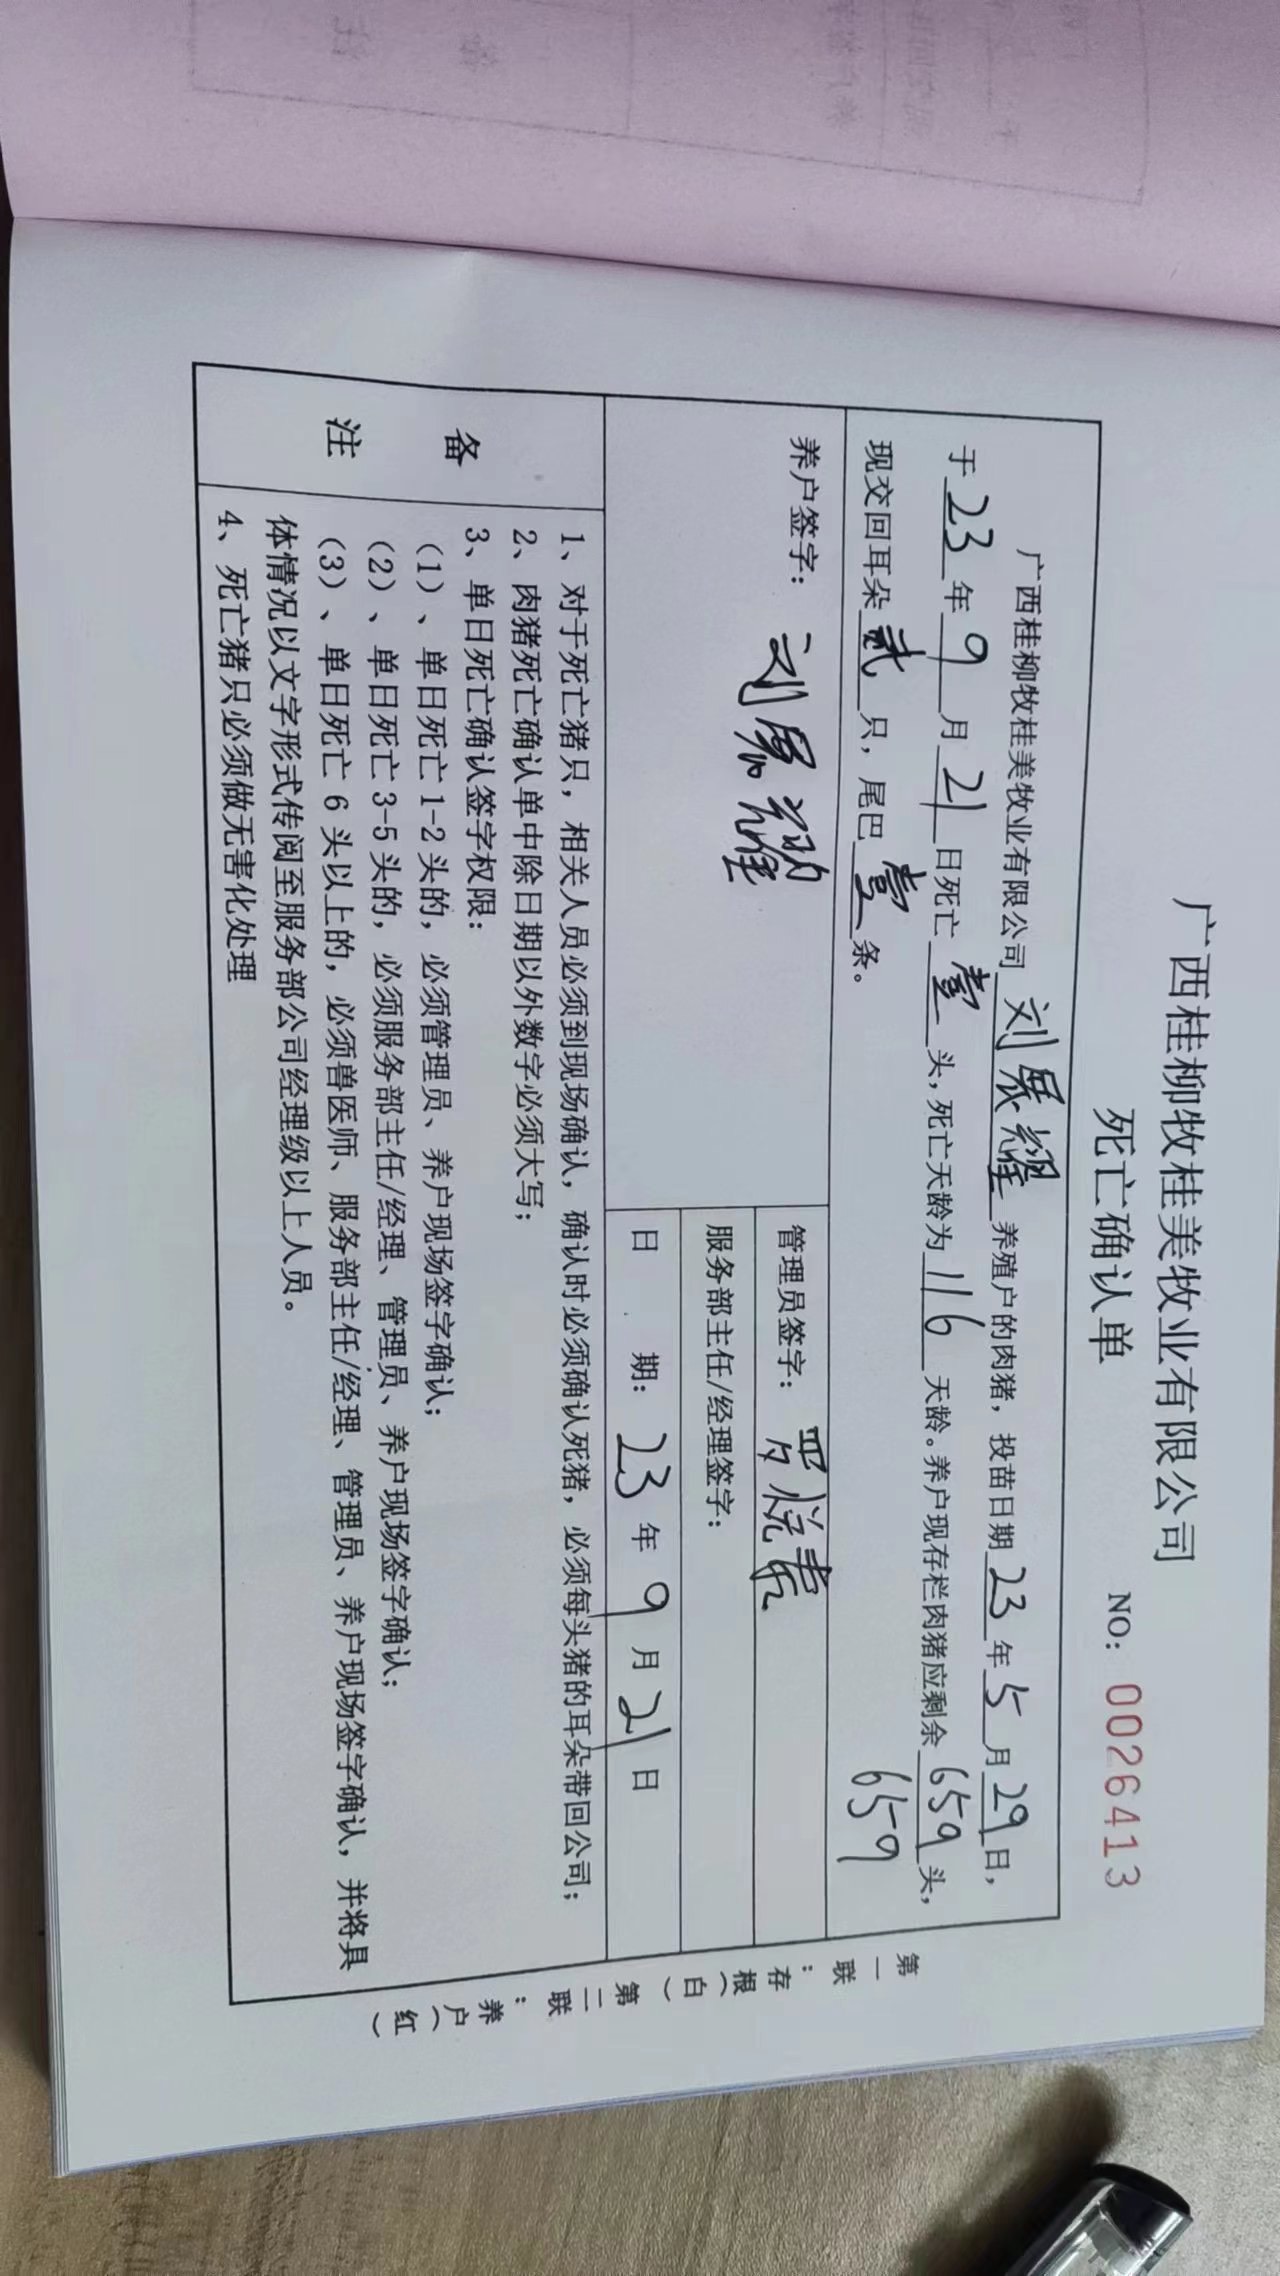 广西桂柳牧桂美牧业有限公司
死亡确认单
NO: 0026413
广西桂柳牧桂美牧业有限公司 刘展耀 养殖户的肉猪，投苗日期 23 年 5 月 29 日，
于 23 年 9 月 21 日死亡 壹 头，死亡天龄为 116 天龄。养户现存栏肉猪应剩余 659 头，
现交回耳朵 贰 只，尾巴 壹 条。
659
养户签字： 刘展耀
管理员签字： 罗
服务部主任/经理签字：
日 期： 23 年 9 月 21 日
备注
1、对于死亡猪只，相关人员必须到现场确认，确认时必须确认死猪，必须每头猪的耳朵带回公司；
2、肉猪死亡确认单中除日期以外数字必须大写；
3、单日死亡确认签字权限：
（1）、单日死亡 1-2 头的，必须管理员、养户现场签字确认；
（2）、单日死亡 3-5 头的，必须服务部主任/经理、管理员、养户现场签字确认；
（3）、单日死亡 6 头以上的，必须兽医师、服务部主任/经理、管理员、养户现场签字确认，并将具
体情况以文字形式传阅至服务部公司经理级以上人员。
4、死亡猪只必须做无害化处理
第一联：存根（白）第二联：养户（红）